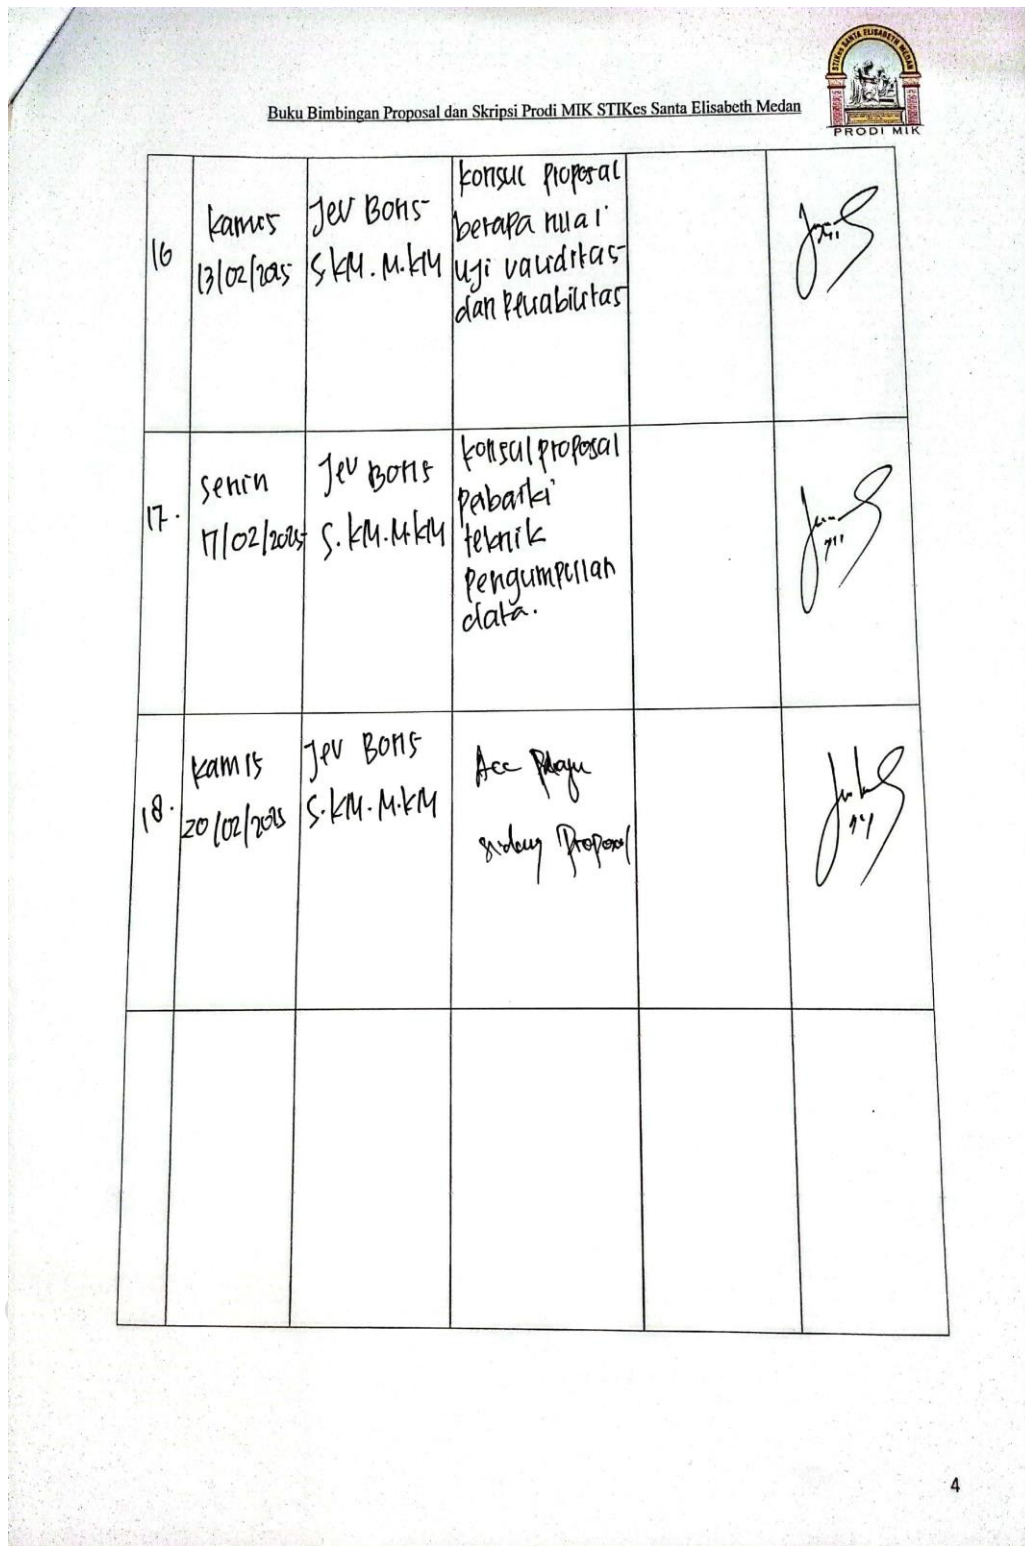 STIKes SANTA ELISABETH MEDAN
PRODI MIK
Buku Bimbingan Proposal dan Skripsi Prodi MIK STIKes Santa Elisabeth Medan
16
Kamis
13/02/2025
Jev Boris
S.KM. M.KM
konsul proposal
berapa nilai
uji validitas
dan Reliabilitas
17.
Senin
17/02/2025
Jev Boris
S.KM.M.KM
konsul proposal
teknik
pengumpulan
data.
18.
Kamis
20/02/2025
Jev Boris
S.KM.M.KM
Acc
sidang Proposal
4